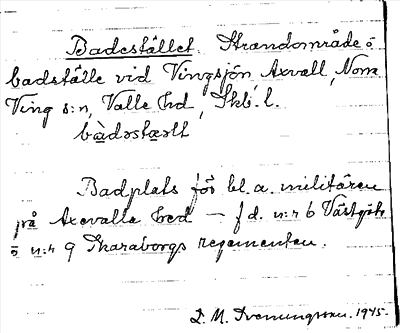 Badestället. Strandområde o
badställe vid Vingsjön Axvall, Norra
Ving s:n, Valle hd, Skb. l.
bàdəstælt
Badplats för bl. a. militären
på Axevalla hed – f d. n:r 6 Västgöta
o n:r 9 Skaraborgs regementen.
L. M. Svenungsson. 1945.